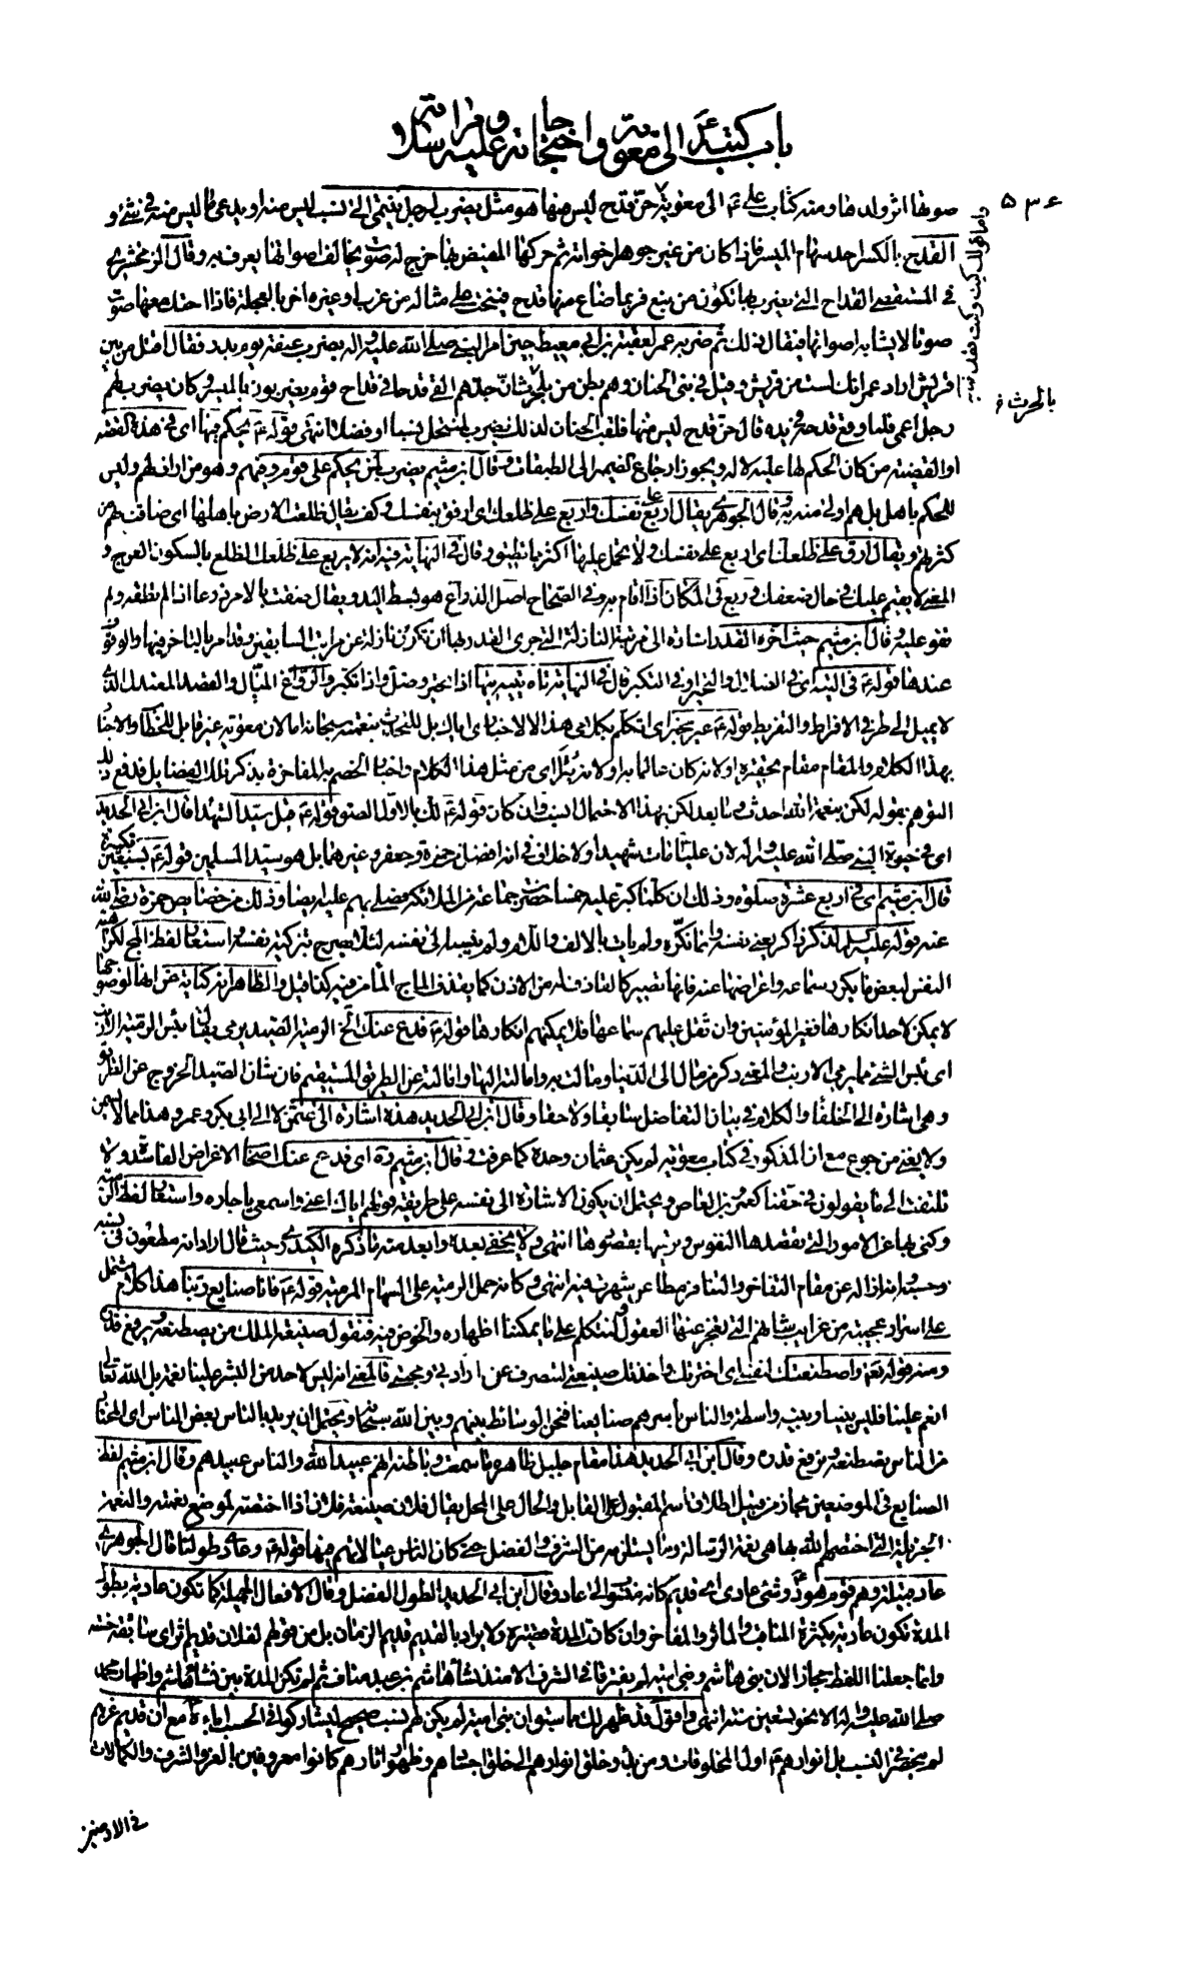 باب كتبه ع الى معوية واحتجاجاته عليه ومراسلاته
٥٣٤
صوتها اثر ولدها ومنه كتاب علي ع الى معوية حن قدح ليس منها هو مثل يضرب لرجل ينتمي الى نسب ليس منه او يدعى ما ليس منه في شئ و
القدح بالكسر احد سهام الميسر فاذا كان من غير جوهر اخواته ثم حركها المفيض بها خرج له صوت يخالف اصواتها يعرف به وقال الزمخشري
في المستقصى القداح التي يضرب بها تكون من نبع فربما ضاع منها قدح فينحت على مثاله من غرب او غيره اخر بالعجلة فاذا احتك معها صوت
صوتا لا يشابه اصواتها فيقال ذلك ثم ضربه عمر لعقبة بن ابي معيط حين امر النبي صلى الله عليه واله بضرب عنقه يوم بدر فقال اقتل من بين
قريش اراد عمر انك لست من قريش وقيل في بني الحنان وهم بطن من بلحرث ان جدهم القى قدحا في قداح قوم يضربون بالميسر وكان يضرب لهم
بالحرث
رجل اعمى فلما وقع قدحه في يده قال حن قدح ليس منها فلقب الحنان لذلك يضرب لمنتحل نسبا او فضلا انتهى قوله ع يحكم فيها اى في هذه القصة
او القضية من كان الحكم لها عليه لا له ويجوز ارجاع الضمير الى الطبقات وقال ابن ميثم يضرب لمن يحكم على قوم وفيهم وهو من اراذلهم وليس
للحكم باهل بل هم اولى منه به وقال الجوهري يقال اربع على نفسك واربع على ظلعك اى ارفق بنفسك وكف يقال ظلعت الارض باهلها اى ضاقت بهم من
كثرتهم ويقال ارق على ظلعك اى اربع على نفسك ولا تحمل عليها اكثر مما تطيق وقال في النهاية فيه انه لا يربع على ظلعك الظلع بالسكون العرج و
المعنى لا يقيم عليك في حال ضعفك وربع في المكان اذا اقام به وفي الصحاح اصل الذرع هو بسط اليد ويقال ضقت بالامر ذرعا اذا لم تطقه ولم
تقو عليه وقال ابن ميثم حيث اخره القدر اشارة الى مرتبة النازلة التي جرى القدر بها ان تكون نازلة عن مراتب السابقين وقد امر بالتاخر فيها والوقوف
عندها قوله ع في التيه اى في الضلال والتحير او في التكبر قال في النهاية تاه يتيه تيها اذا تحير وضل واذا تكبر والرواغ الميال والقصد المعتدل الذي
لا يميل الى طرفي الافراط والتفريط قوله ع غير مخبر اى اتكلم بكلامي هذا لا لاخبارى اياك بل للتحدث بنعمته سبحانه اما لان معوية غير قابل للخطاب والاخبار
بهذا الكلام والمقام مقام تحقيره او لانه كان عالما به او لانه يتراءى من مثل هذا الكلام واخبار الخصم به المفاخرة بذكر تلك الفضايل فدفع ذلك
التوهم بقوله لكن بنعمة الله احدث وما بعد لكن بهذا الاحتمال انسب وان كان قوله ع لك بالاول الصق قوله ع قيل سيد الشهداء قال ابن ابي الحديد
اى في حيوة النبي صلى الله عليه واله لان عليا ع مات شهيدا ولا خلاف في انه افضل من حمزة وجعفر وغيرهما بل هو سيد المسلمين قوله ع بسبعين تكبيرة
قال ابن ميثم اى في اربع عشرة صلوة وذلك ان كلما كبر عليه خمسا حضرت جماعة من الملائكة فصلى بهم عليه ايضا وذلك من خصايص حمزة رضي الله
عنه قوله عليه السلام لذكر ذاكر يعنى نفسه وانما نكره ولم يات بالالف واللام ولم ينسبه الى نفسه لئلا يصرح بتزكية نفسه واستعار لفظ المج لكراهية
النفس لبعض ما يكرر سماعه واعراضها عنه فانها تصير كالقاذف له من الاذن كما يقذف الماج الماء من فيه كذا قيل والظاهر انه كناية عن انها لوضوحها
لا يمكن لاحد انكارها فغير المؤمنين وان ثقل عليهم سماعها فلا يمكنهم انكارها قوله ع فدع عنك الخ الرمية الصيد يرمى يقال بئس الرمية الارنب
اى بئس الشئ مما يرمى الارنب والمعنى دع ذكر من مال الى الدنيا ومالت به وامالته اليها وامالته عن الطريق المستقيم فان شان الصيد الخروج عن الطريق
وهي اشارة الى الخلفاء والكلام في بيان التفاضل سابقا ولاحقا وقال ابن ابي الحديد هذه اشارة الى عثمن لا الى ابي بكر وعمر وهذا مما لا يسمن
ولا يغني من جوع مع ان المذكور في كتاب معوية لم يكن عثمان وحده كما عرفت وقال ابن ميثم ره اى فدع عنك اصحاب الاغراض الفاسدة ولا
تلتفت الى ما يقولون في حقنا كعمرو بن العاص ويحتمل ان يكون الاشارة الى نفسه على طريقة قولهم اياك اعني واسمعي يا جاره واستعار لفظ الرمية
وكنى بها عن الامور التي تقصدها النفوس وترميها بقصودها انتهى ولا يخفى بعده وابعد منه ما ذكره الكيدري حيث قال اراد انه مطعون في نسبه
وحسبه وانه ازاله عن مقام التفاخر والتنافر مطاعن شهرت فيه انتهى وكانه حمل الرمية على السهام المرمية قوله ع فانا صنايع ربنا هذا كلام مشتمل
على اسرار عجيبة من غرايب شانهم التي تعجز عنها العقول ولنتكلم على ما يمكننا اظهاره والخوض فيه فنقول صنيعة الملك من يصطنعه ويرفع قدره
ومنه قوله تعالى واصطنعتك لنفسى اى اخترتك واخذتك صنيعتي لتتصرف عن ارادتي ومحبتي فالمعنى انه ليس لاحد من البشر علينا نعمة بل الله تعالى
انعم علينا فليس بيننا وبينه واسطة والناس باسرهم صنايعنا فنحن الوسائط بينهم وبين الله سبحانه ويحتمل ان يريد بالناس بعض الناس اى المختار
من الناس نصطنعه ونرفع قدره وقال ابن ابي الحديد هذا مقام جليل ظاهره ما سمعت وباطنه انهم عبيد الله والناس عبيدهم وقال ابن ميثم لفظ
الصنايع في الموضعين مجاز من قبيل اطلاق اسم المقبول على القابل والحال على المحل يقال فلان صنيعة فلان اذا اختصه لموضع نعمته والنعمة
الجزيلة التي اختصهم الله بها هي نعمة الرسالة وما يستلزمه من الشرف والفضل حتى كان الناس عيالا لهم فيها قوله ع وعادي طولنا قال الجوهري
عاد قبيلة وهم قوم هود وشئ عادى اى قديم كانه منسوب الى عاد وقال ابن ابي الحديد الطول الفضل وقال الافعال الجميلة كما تكون عادية بطول
المدة تكون عادية بكثرة المناقب والماثر والمفاخر وان كانت المدة قصيرة ولا يراد بالقديم قديم الزمان بل من قولهم لفلان قديم اثر اى سابقة حسنة
وانما جعلنا اللفظ مجازا لان بني هاشم وبني امية لم يفترقا في الشرف الا منذ نشا هاشم بن عبد مناف ثم لم تكن المدة بين نشاء هاشم واظهار محمد
صلى الله عليه واله الا نحو تسعين سنة انتهى واقول قد ظهر لك مما سبق ان بني امية لم يكن لهم نسب صحيح ليشاركوا في الحسب اباءه ع مع ان قديم عزهم
لم ينحصر في النسب بل انوارهم ع اول المخلوقات ومن بدو خلق انوارهم الى خلق اجسادهم وظهور اثارهم كانوا معروفين بالعز والشرف والكمالات
في الارضين